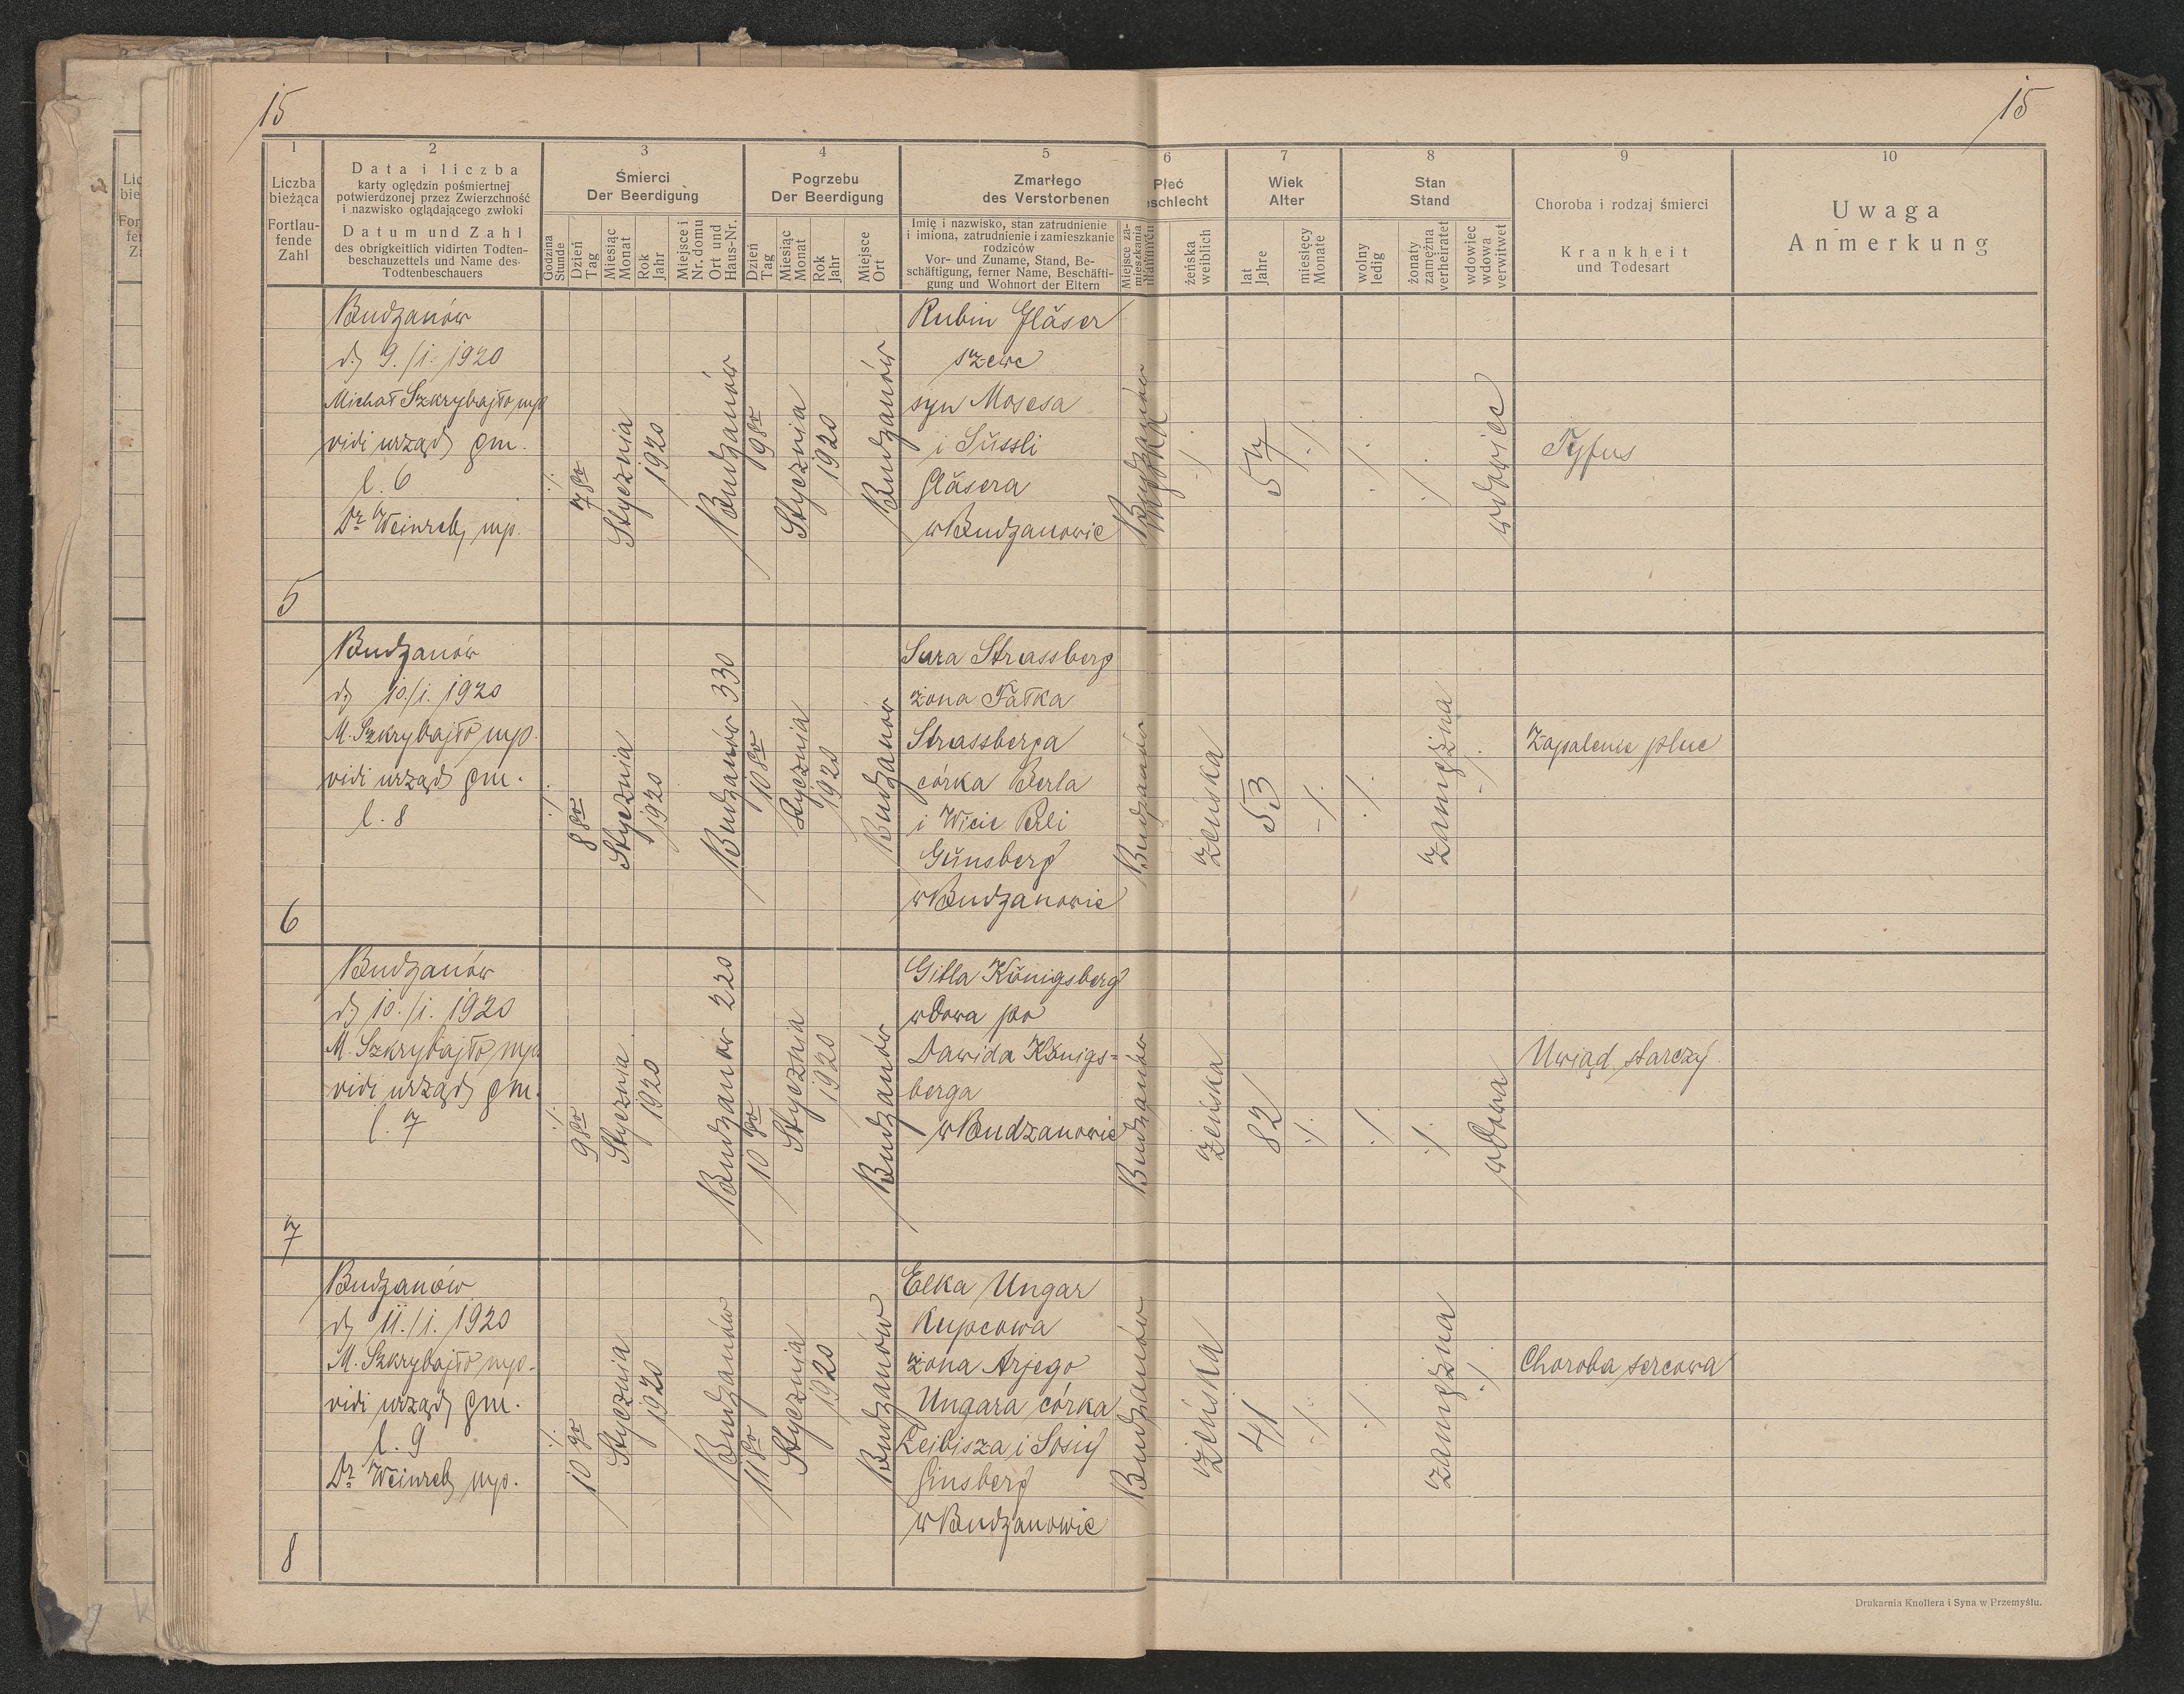 15
15
1
Liczba
bieżąca
Fortlau-
fende
Zahl
2
Data i liczba
karty oględzin pośmiertnej
potwierdzonej przez Zwierzchność
i nazwisko oglądającego zwłoki
Datum und Zahl
des obrigkeitlich vidirten Todten-
beschauzettels und Name des
Todtenbeschauers
3
Śmierci
Der Beerdigung
Godzina
Stunde
Dzień
Tag
Miesiąc
Monat
Rok
Jahr
Miejsce i
Nr. domu
Ort und
Haus-Nr.
4
Pogrzebu
Der Beerdigung
Dzień
Tag
Miesiąc
Monat
Rok
Jahr
Miejsce
Ort
5
Zmarłego
des Verstorbenen
Imię i nazwisko, stan zatrudnienie
i imiona, zatrudnienie i zamieszkanie
rodziców
Vor- und Zuname, Stand, Be-
schäftigung, ferner Name, Beschäfti-
gung und Wohnort der Eltern
Miejsce za-
mieszkania
6
Płeć
eschlecht
żeńska
weiblich
7
Wiek
Alter
lat
Jahre
miesięcy
Monate
8
Stan
Stand
wolny
ledig
żonaty
zamężna
verheiratet
wdowiec
wdowa
verwitwet
9
Choroba i rodzaj śmierci
Krankheit
und Todesart
10
Uwaga
Anmerkung
5
Budzanów
d. 9./1. 1920
Michał Szkrybajło mp
vidi urząd gm.
l. 6
Dr Weinreb mp.
./.
7go
Stycznia
1920
Budzanów
9go
Stycznia
1920
Budzanów
Rubin Gläser
szewc
syn Mosesa
i Süssli
Gläsera
w Budzanowie
Budzanów
męska
./.
57
./.
./.
./.
wdowiec
Tyfus
6
Budzanów
d. 10./1. 1920
M. Szkrybajło mp.
vidi urząd gm.
l. 8
./.
8go
Stycznia
1920
Budzanów 330
10go
Stycznia
1920
Budzanów
Sara Strassberg
żona Fałka
Strassberga
córka Berla
i Wicie Perli
Günsberg
w Budzanowie
Budzanów
żeńska
53
./.
./.
zamężna
./.
Zapalenie płuc
7
Budzanów
d. 10./1. 1920
M. Szkrybajło mp.
vidi urząd gm.
l. 7
./.
9go
Stycznia
1920
Budzanów 220
10go
Stycznia
1920
Budzanów
Gitla Königsberg
wdowa po
Dawida Königs=
berga
w Budzanowie
Budzanów
żeńska
82
./.
./.
./.
wdowa
Uwiąd starczy
8
Budzanów
d. 11./1. 1920
M. Szkrybajło mp.
vidi urząd gm.
l. 9
Dr Weinreb mp.
./.
10go
Stycznia
1920
Budzanów
11go
Stycznia
1920
Budzanów
Elka Ungar
kupcowa
żona Arjego
Ungara córka
Leibisza i Sosię
Ginsberg
w Budzanowie
Budzanów
żeńska
41
./.
./.
zamężna
./.
Choroba sercowa
Drukarnia Knollera i Syna w Przemyślu.